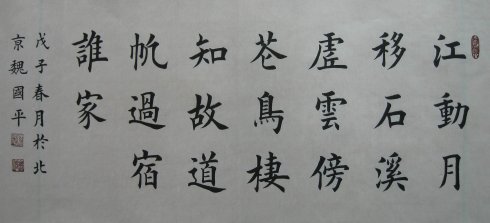 江動月
移石溪
虛雲傍
花鳥棲
知故道
帆過宿
誰家
戊子春月於北
京魏國平